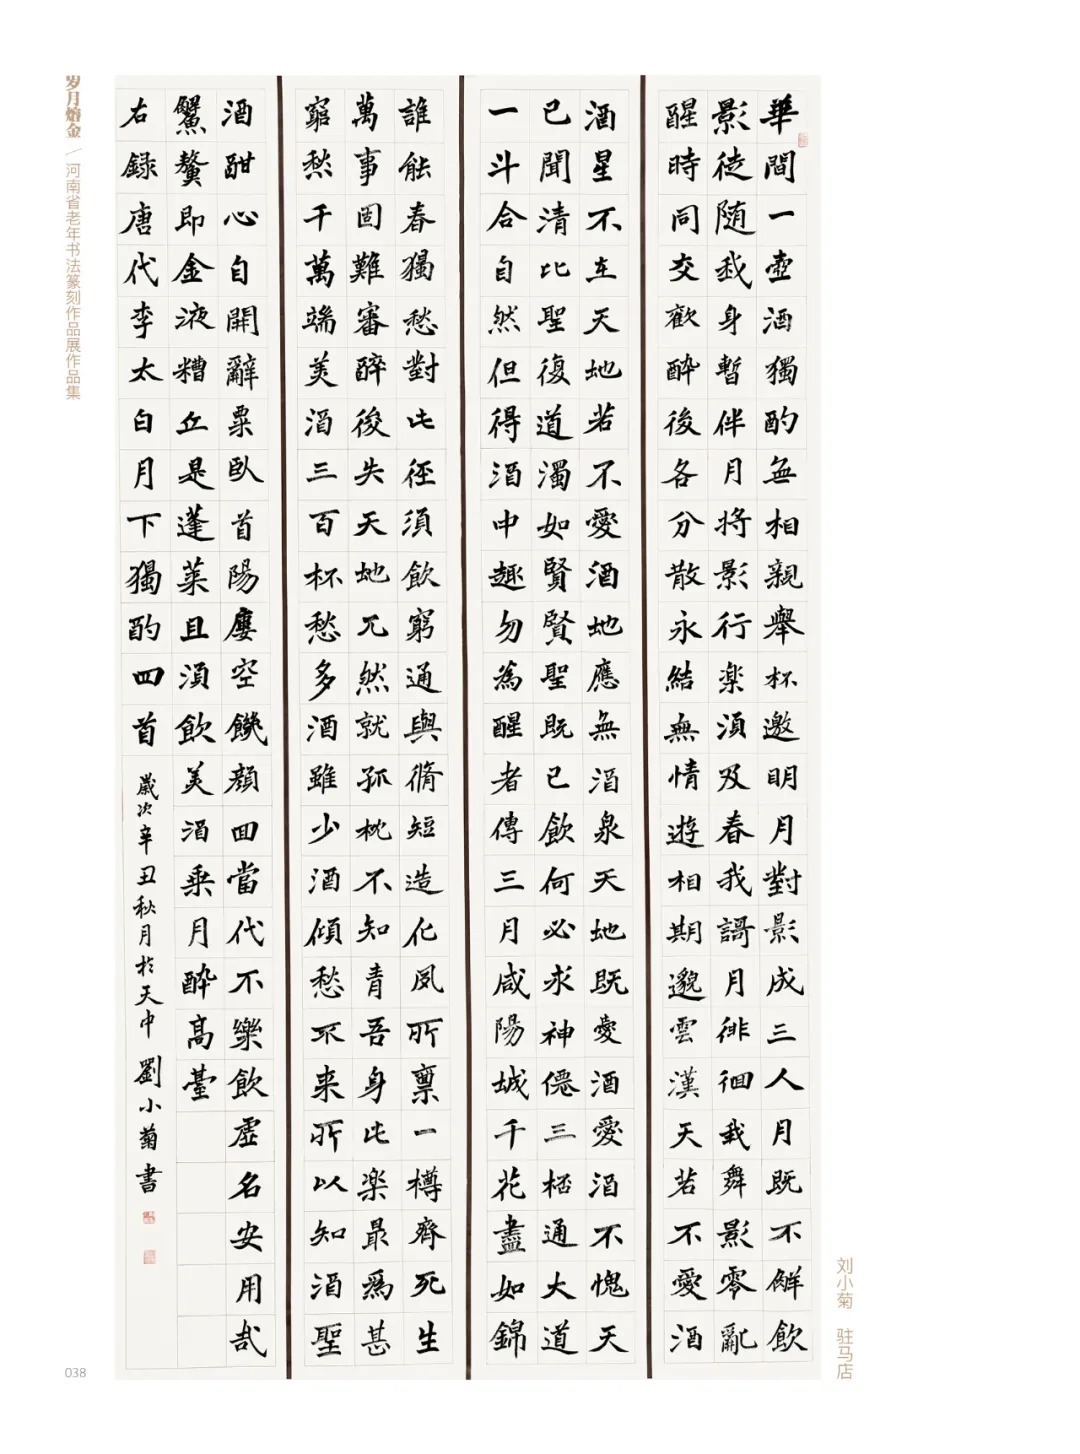 岁月熔金／河南省老年书法篆刻作品展作品集
華間一壺酒獨酌無相親舉杯邀明月對影成三人月既不解飲
影徒随我身暫伴月将影行楽須及春我謌月徘徊我舞影零亂
醒時同交歡醉後各分散永結無情遊相期邈雲漢天若不愛酒
酒星不在天地若不愛酒地應無酒泉天地既愛酒愛酒不愧天
已聞清比聖復道濁如賢賢聖既已飲何必求神僊三桮通大道
一斗合自然但得酒中趣勿為醒者傳三月咸陽城千花盡如錦
誰能春獨愁對此徑須飲窮通與脩短造化夙所禀一樽齊死生
萬事固難審醉後失天地兀然就孤枕不知青吾身此楽最為甚
窮愁千萬端美酒三百杯愁多酒雖少酒傾愁不来所以知酒聖
酒酣心自開辭粟臥首陽屢空饑顏回當代不樂飲虛名安用哉
蟹螯即金液糟丘是蓬萊且須飲美酒乗月醉高臺
右録唐代李太白月下獨酌四首 歲次辛丑秋月於天中劉小菊書
刘小菊 驻马店
038